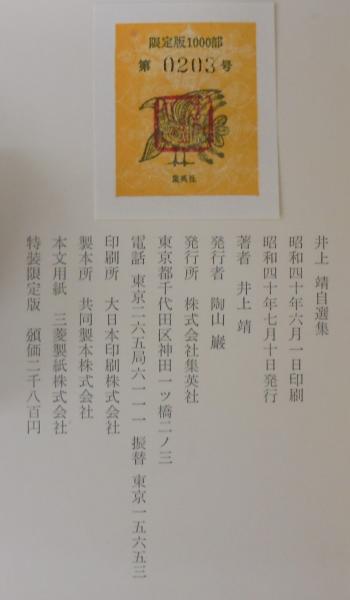 限定版1000部
第 0203 号
集英社
井上 靖自選集
昭和四十年六月一日印刷
昭和四十年七月十日発行
著者 井上 靖
発行者 陶山 巌
発行所 株式会社集英社
東京都千代田区神田一ツ橋二ノ三
電話 東京二六五局六一一一 振替 東京一五六五三
印刷所 大日本印刷株式会社
製本所 共同製本株式会社
本文用紙 三菱製紙株式会社
特装限定版 頒価二千八百円